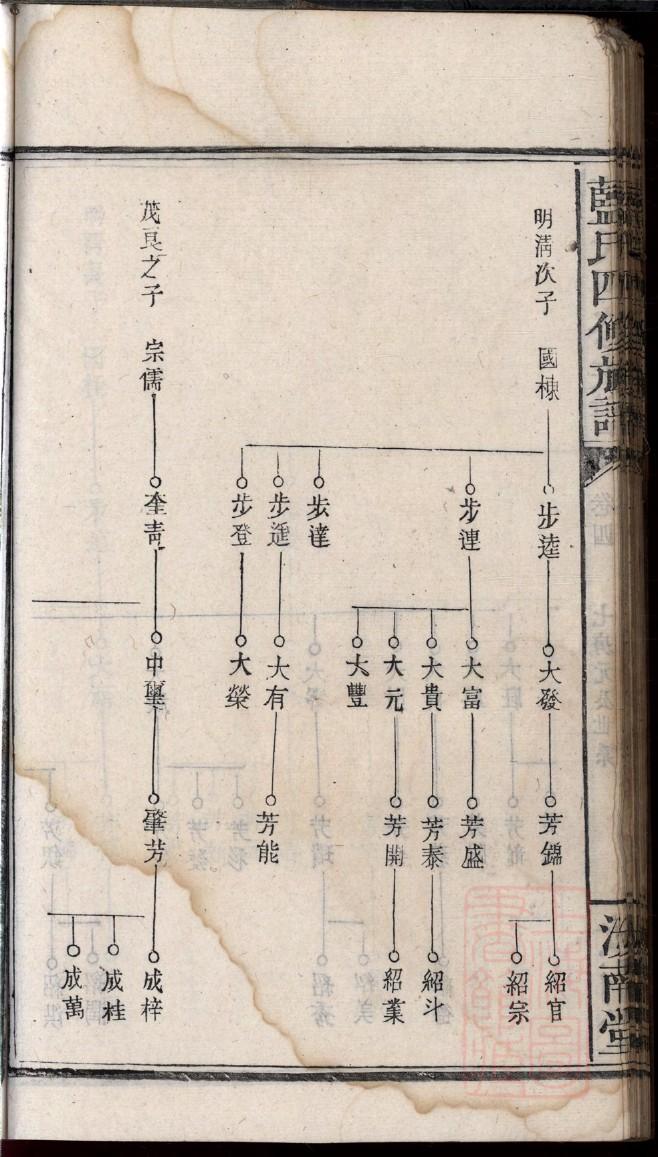 藍氏四修族譜
卷四
汝南堂
明淸次子 國棟
步逵
大發
芳錦
紹官
紹宗
步連
大富
芳盛
大貴
芳泰
紹斗
大元
芳開
紹業
大豐
步達
步進
大有
芳能
步登
大榮
茂良之子 宗儒
奎靑
中舉
肇芳
成梓
成桂
成萬